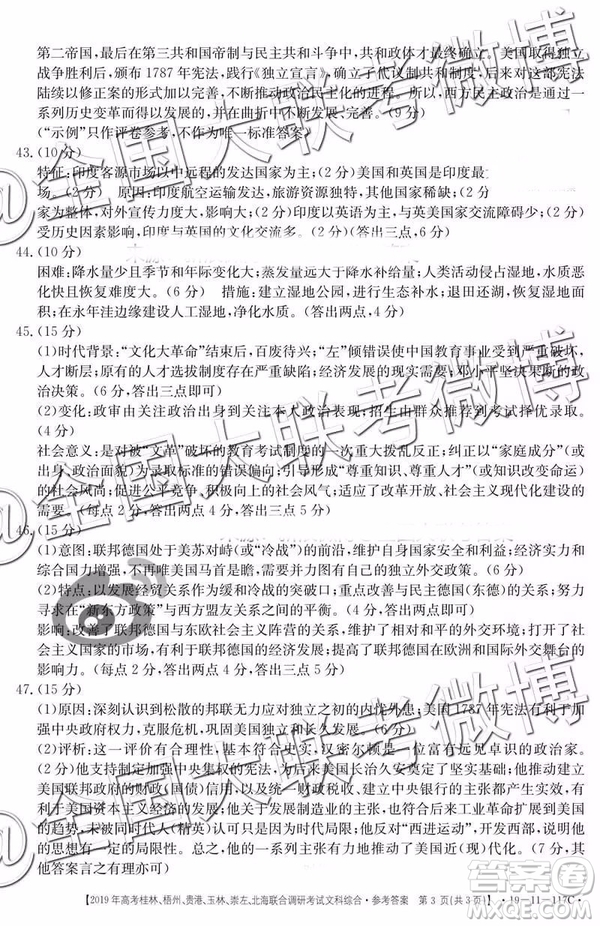 第二帝国,最后在第三共和国帝制与民主共和斗争中,共和政体才最终确立。美国取得独立
战争胜利后,颁布1787年宪法,践行《独立宣言》,确立了代议制共和制度,后来对这部宪法
陆续以修正案的形式加以完善,不断推动政治民主化的进程。西方民主政治是通过一
系列历史变革而得以发展的,并在曲折中不断完善。(9分)
(“示例”只作评卷参考,不作为唯一标准答案)
43.(10分)
特征:印度客源市场以中远程的发达国家为主;(2分)美国和英国是印度最
场。(2分) 原因:印度航空运输发达,旅游资源独特,其他国家稀缺;(2分
家为整体,对外开放程度大;(2分)印度以英语为主,与英美国家交流障碍少;(2分)
受历史因素影响,与英美国家交流较多。(2分)(答出三点,
44.(10分)
困难:降水量少且季节和年际变化大;蒸发量远大于降水量
;人类活动侵占湿地,水体自
净和恢复难度大。(6分) 措施:建立湿地公园,进行人工生态补水;退田还湖,恢复湿地;
在永年洼边缘建设人工湿地,净化水质。(答出两点4分)
45.(15分)
(1)时代背景:“文化大革命”结束后,百废待兴;“左”倾错误使中国教育事业受到严重破坏,
人才断层;高校招生制度存在严重缺陷;经济发展的现实需要;邓小平坚决果断的政
治决策。(6分,答出三点即可)
(2)变化:政审由关注政治出身到关注本人政治表现;招生由推荐到考试择优录取。
(4分)
社会意义:是对被“文革”破坏的教育考试制度的一次重大拨乱反正;纠正以“家庭成分”(或
出身、政治面貌)为标准的错误偏向;引领形成尊重知识、尊重人才”(或知识改变命运)
的社会风尚;促进公平竞争,具有稳定社会风气作用;适应了改革开放、社会主义现代化
建设的需要。(5分)
46.(15分)
(1)意图:联邦德国处于美苏对峙(或“冷战”)的前沿,维护自身国家安全和利益;经济实力和
综合国力增强,不再唯美国马首是瞻,需要开展自己的独立外交政策。(6分)
(2)特点:以发展经济关系作为缓和冷战的突破口;重点改善与民主德国(东德)的关系;努力
寻求在“新东方政策”与西方盟友关系之间的平衡。(每点2分,答出两点4分)
影响:改善了联邦德国与东欧社会主义阵营的关系,创造了和平相处的外交环境;推动了
联邦德国的发展;推动了欧洲缓和局势的出现;提升了联邦德国在欧洲和国际舞台上的
影响力。(每点2分,答出两点4分,答出三点5分)
47.(15分)
(1)原因:深刻认识到松散的邦联无力应对独立之初的内忧外患;美国1787年宪法旨在加
强中央政府权力,克服危机,巩固国家主权,实现长久繁荣。(6分)
(2)评析:这一评价有合理之处,汉密尔顿是一位富有远见卓识的政治家。
(2分)他支持制定加强中央集权的宪法,为美国的长治久安奠定了基础;他主张建立
美国联邦政府的财政(国债)信用、统一财政、建立中央银行等都产生实效,有力地推
动了美国的资本主义经济的发展;他关于发展制造业的主张,也符合近代工业革命开展
的趋势,未被同时代人(精英)认可只是因为时代局限;他反对“西进运动”,表明他思想
的时代局限性,未能顺应美国开疆拓土、向西部发展的历史潮流。(任意三点7分,其
他答案言之有理亦可)
【2019年高考桂林、梧州、贵港、玉林、崇左、北海联合调研考试文科综合·参考答案 第3页(共3页)】 ·19-11-117C·
@全国大联考微博
@全国大联考微博
@全国大联考微博
答案圈
DAANQUAN.COM